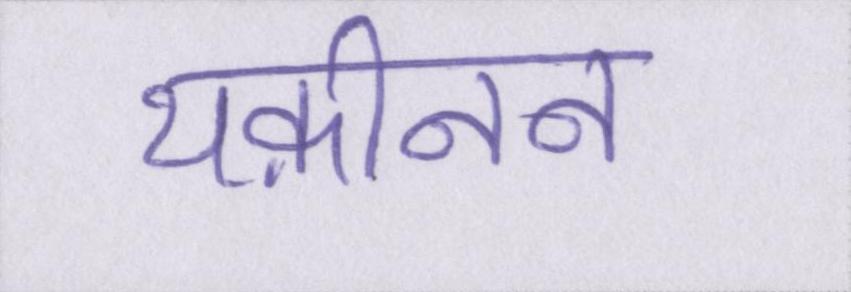 यक़ीनन